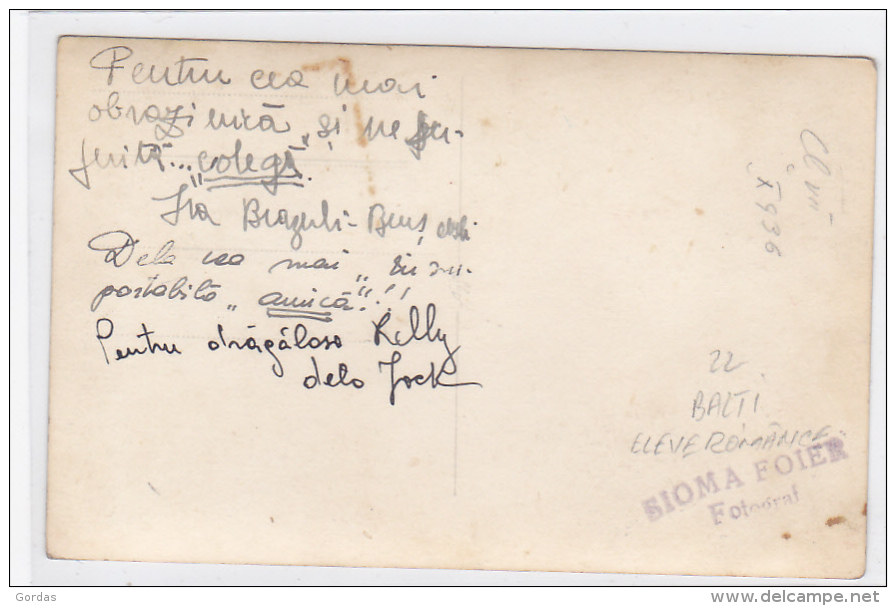 Pentru cea mai
obraznică și ne
„colegă”.
Dela cea mai „in su-
portabilă „amică”!!!
Pentru drăgălașa
dela Jock
Cl. VII
X 936
22
BALTI
ELEVE ROMÂNCE
SIOMA FOIER
Fotograf
Gordas
www.delcampe.net